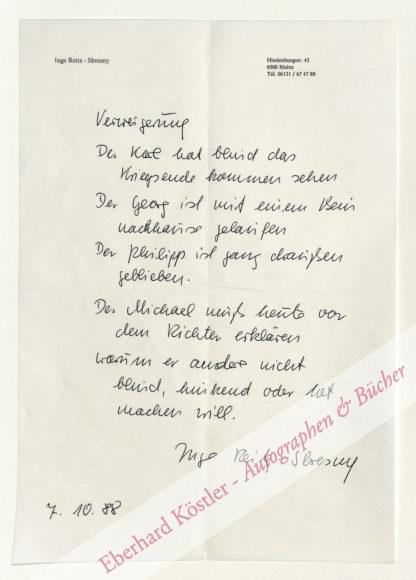 Inge Reitz - Sbresny
Hindenburgstr. 43
6500 Mainz
Tel. 06131 / 67 47 88
Verweigerung
Der Karl hat blind das
Kriegsende kommen sehen
Der Georg ist mit einem Bein
nachhause gelaufen
Der Philipp ist ganz draußen
geblieben.
Der Michael muß heute vor
dem Richter erklären
warum er andere nicht
blind, hinkend oder tot
machen will.
Inge Reitz-Sbresny
7. 10. 88
Eberhard Köstler - Autographen & Bücher